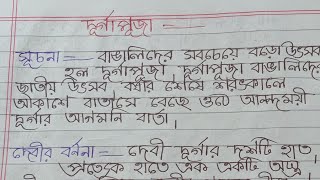 দূর্গাপূজা
সূচনা — বাঙালিদের সবচেয়ে বড়ো উৎসব
হল দূর্গাপূজা। দূর্গাপূজা বাঙালিদের
জাতীয় উৎসব। বর্ষার শেষে শরৎকালে
আকাশে বাতাসে বেজে ওঠে আনন্দময়ী
দূর্গার আগমনি বার্তা।
দেবীর বর্ননা — দেবী দূর্গার দশটি হাত,
প্রত্যেক হাতে এক একটি অস্ত্র